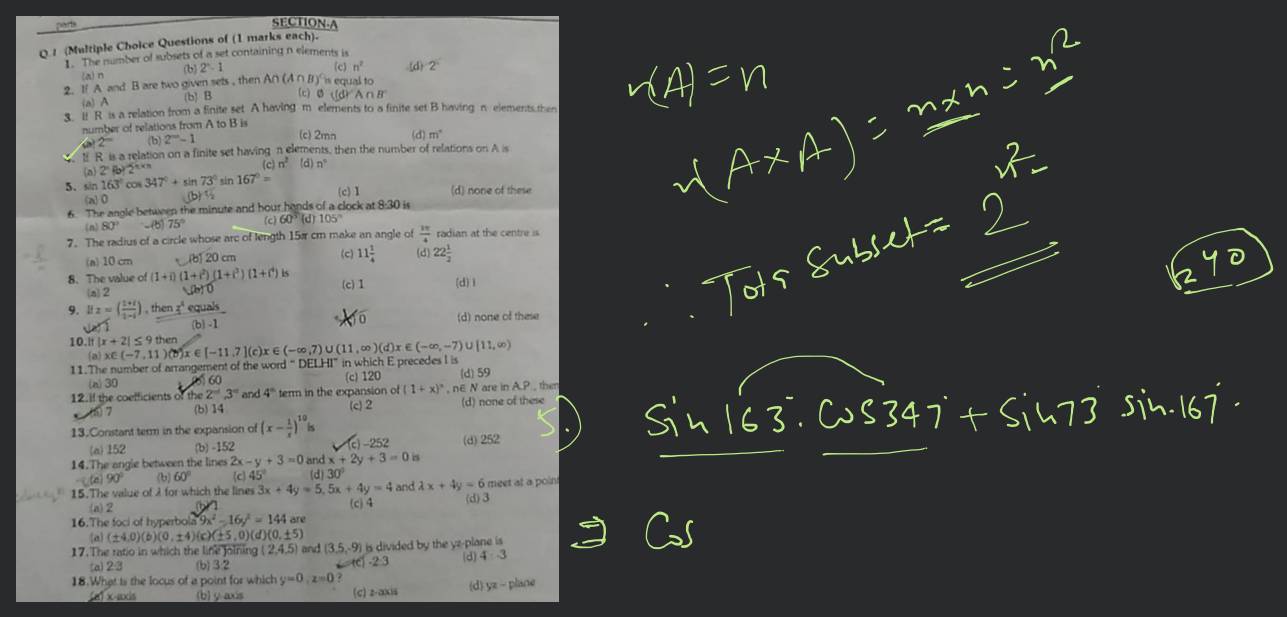 SECTION-A
Q.1 (Multiple Choice Questions of (1 marks each)-
1. The number of subsets of a set containing n elements is
(a) n (b) 2ⁿ- 1 (c) n² (d) 2ⁿ
2. If A and B are two given sets , then A∩ (A ∩ B)ᶜ is equal to
(a) A (b) B (c) ∅ (d) A ∩ Bᶜ
3. If R is a relation from a finite set A having m elements to a finite set B having n elements,then
number of relations from A to B is
(a) 2ᵐⁿ (b) 2ᵐⁿ- 1 (c) 2mn (d) mⁿ
If R is a relation on a finite set having n elements, then the number of relations on A is
(a) 2ⁿ (b) 2ⁿˣⁿ (c) n² (d) nⁿ
5. sin 163° cos 347° + sin 73° sin 167° =
(a) 0 (b) ½ (c) 1 (d) none of these
6. The angle between the minute and hour hands of a clock at 8:30 is
(a) 80° (b) 75° (c) 60° (d) 105°
7. The radius of a circle whose arc of length 15π cm make an angle of 3π/4 radian at the centre is
(a) 10 cm (b) 20 cm (c) 11¼ (d) 22½
8. The value of (1+i) (1+i²) (1+i³) (1+i⁴) is
(a) 2 (b) 0 (c) 1 (d) i
9. If z = (1+i/1-i), then z⁴ equals
(a) 1 (b) -1 (c) 0 (d) none of these
10.If |x + 2| ≤ 9 then
(a) x∈ (-7, 11 )(b)x ∈ [-11,7](c)x ∈ (-∞,7) ∪ (11, ∞)(d)x ∈ (-∞, -7) ∪ [11, ∞)
11.The number of arrangement of the word " DELHI" in which E precedes I is
(a) 30 (b) 60 (c) 120 (d) 59
12.If the coefficients of the 2ⁿᵈ ,3ʳᵈ and 4ᵗʰ term in the expansion of ( 1 + x)ⁿ, n∈ N are in A.P., then
(a) 7 (b) 14 (c) 2 (d) none of these
13.Constant term in the expansion of (x − 1/x)¹⁰ is
(a) 152 (b) -152 (c) -252 (d) 252
14.The angle between the lines 2x − y + 3 =0 and x + 2y + 3 = 0 is
(a) 90° (b) 60° (c) 45° (d) 30°
15.The value of λ for which the lines 3x + 4y = 5, 5x + 4y = 4 and λ x + 4y = 6 meet at a point
(a) 2 (b) 1 (c) 4 (d) 3
16.The foci of hyperbola 9x² − 16y² = 144 are
(a) (±4,0)(b)(0, ±4)(c)(±5, 0)(d)(0, ±5)
17.The ratio in which the line joining ( 2,4,5) and (3,5,-9) is divided by the yz-plane is
(a) 2:3 (b) 3:2 (c) -2:3 (d) 4 : -3
18.What is the locus of a point for which y=0 , z=0 ?
(a) x-axis (b) y-axis (c) z-axis (d) yz – plane
n(A) = n
n(A×A) = n×n = n²
n²
∴ Total Subset = 2
5.) Sin 163°. Cos 347° + Sin 73° Sin.167°.
⇒ Cos